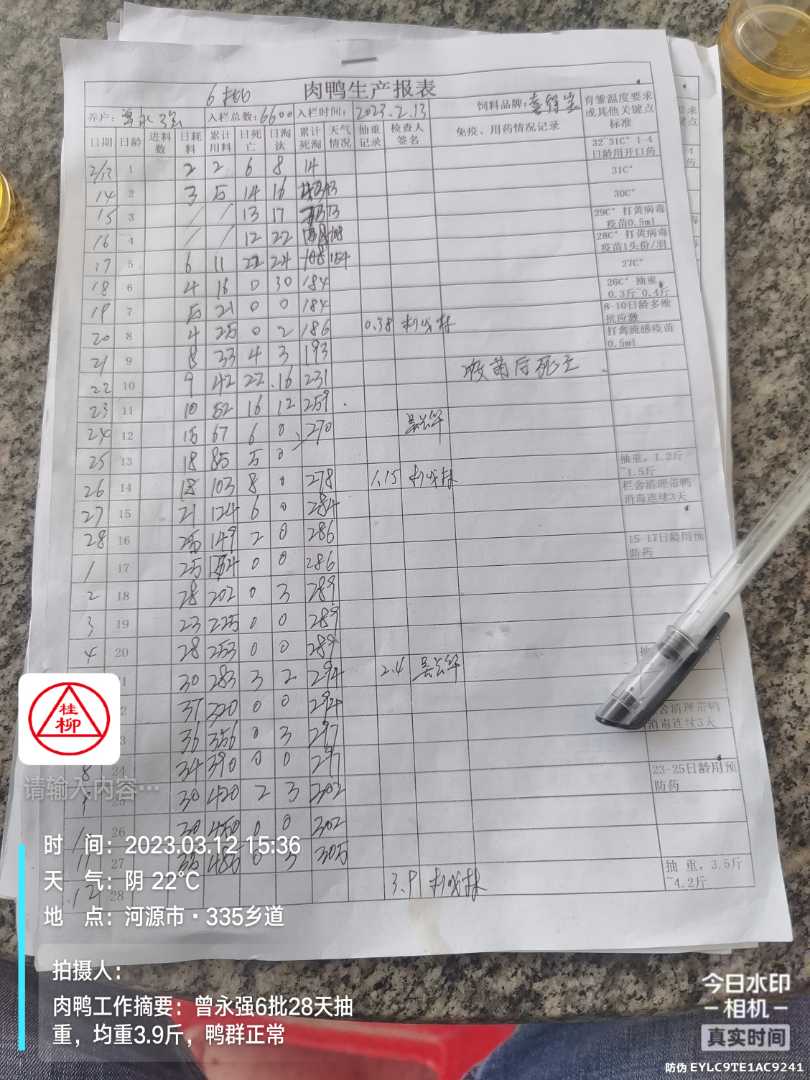 6批 肉鸭生产报表
养户: 入栏总数: 6600 入栏时间: 2023.2.13 饲料品牌: 育雏温度要求或其他关键点标准
日期 日龄 进料数 日耗料 累计用料 日死亡 日淘汰 累计死淘 天气情况 抽重记录 检查人签名 免疫、用药情况记录
1 2 2 6 8 14 32~31C° 1-4日龄用开口药
14 2 3 5 14 16 31C°
15 3 / / 13 17 30C°
16 4 / / 12 22 29C° 打黄病毒疫苗0.5ml
28C° 打黄病毒疫苗1头份/羽
17 5 6 11 22 24 154 27C°
18 6 4 16 0 30 184 26C° 抽重:0.3斤~0.4斤
19 7 5 21 0 0 184 8-10日龄多维抗应激
20 8 4 25 0 2 186 0.38 打禽流感疫苗0.5ml
21 9 8 33 4 3 193
22 10 9 42 22 16 231 疫苗后死亡
23 11 10 52 16 12 259
24 12 15 67 6 0 270
25 13 18 85 5 0 抽重，1.2斤~1.5斤
26 14 18 103 8 0 278 1.15 栏舍清理带鸭消毒连续3天
27 15 21 124 6 0 284
28 16 25 149 2 0 286 15-17日龄用预防药
1 17 25 0 0 286
2 18 28 202 0 3 289
3 19 23 225 0 0 289
4 20 28 253 0 0 289 抽
30 283 3 2 294 2.4
37 320 0 0 294 舍清理带鸭消毒连续3天
36 356 0 3 297
8 24 34 390 0 0 297 23-25日龄用预防药
25 30 420 2 3 302
26 30 450 0 0 302
11 27 0 3 305
12 28 3.9 抽重，3.5斤~4.2斤
桂柳
请输入内容…
时 间：2023.03.12 15:36
天 气：阴 22℃
地 点：河源市·335乡道
拍摄人：
肉鸭工作摘要：曾永强6批28天抽
重，均重3.9斤，鸭群正常
今日水印
-相机-
真实时间
防伪 EYLC9TE1AC9241